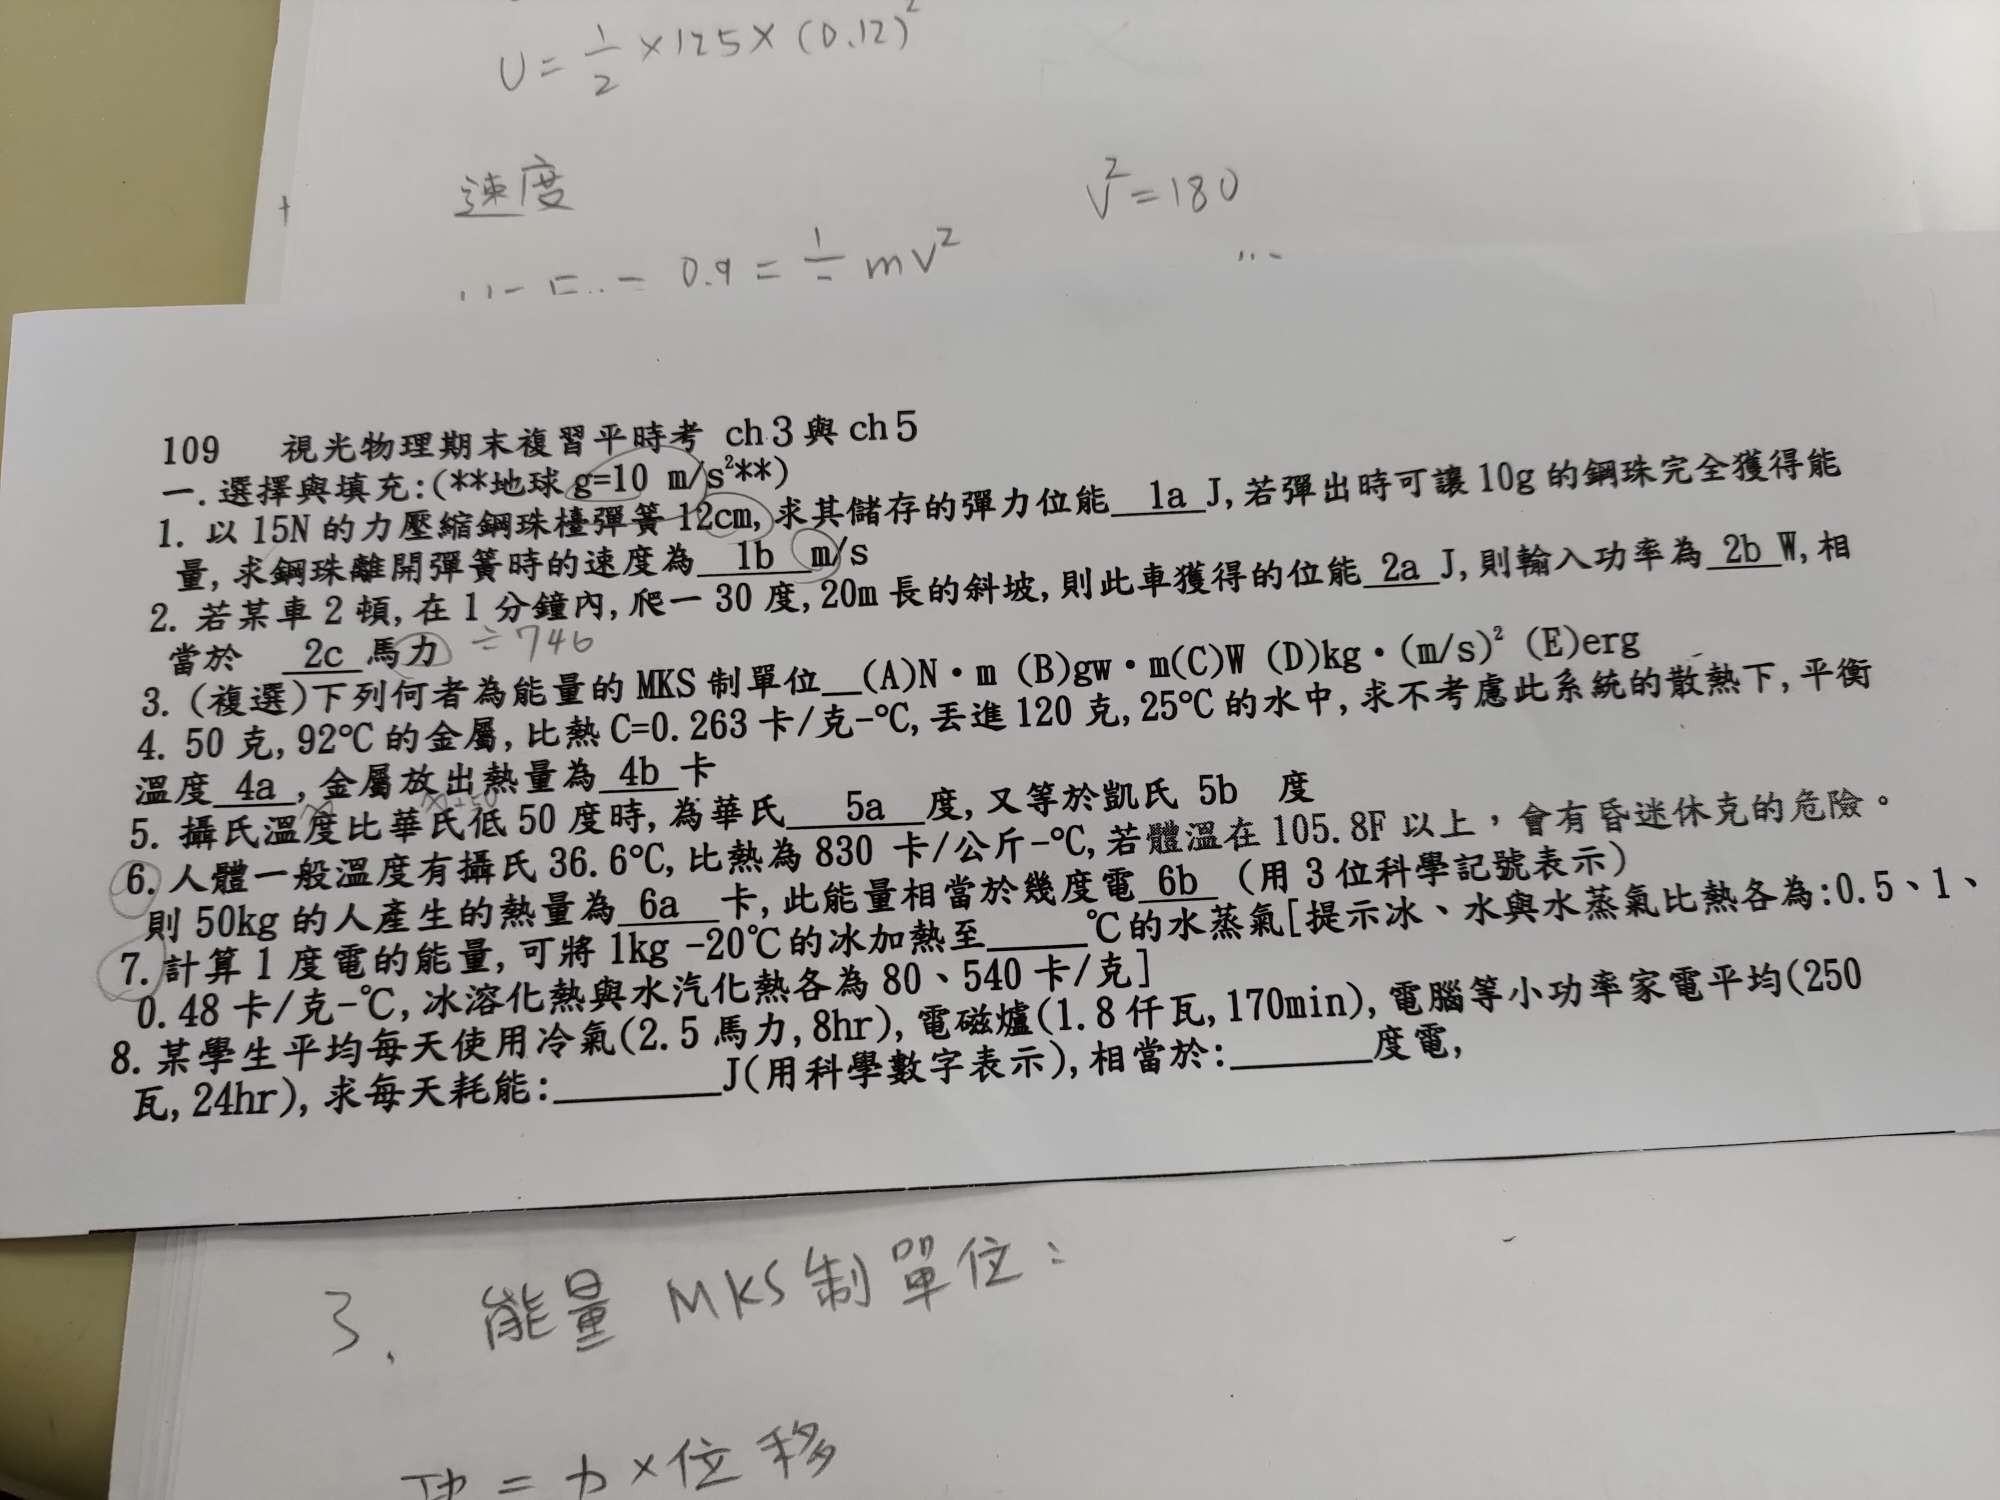 U = 1/2 × 125 × (0.12)²
速度
v² = 180
0.9 = 1/ mv²
109 視光物理期末複習平時考 ch3與ch5
一.選擇與填充:(**地球 g=10 m/s²**)
1. 以15N的力壓縮鋼珠檯彈簧12cm,求其儲存的彈力位能 1a J,若彈出時可讓10g的鋼珠完全獲得能
量,求鋼珠離開彈簧時的速度為 1b m/s
2. 若某車2頓,在1分鐘內,爬一30度,20m長的斜坡,則此車獲得的位能 2a J,則輸入功率為 2b W,相
當於 2c 馬力 ÷746
3. (複選)下列何者為能量的MKS制單位__(A)N・m (B)gw・m(C)W (D)kg・(m/s)² (E)erg
4. 50克,92℃的金屬,比熱C=0.263卡/克-℃,丟進120克,25℃的水中,求不考慮此系統的散熱下,平衡
溫度 4a ,金屬放出熱量為 4b 卡
5. 攝氏溫度比華氏低50度時,為華氏 5a 度,又等於凱氏 5b 度
6. 人體一般溫度有攝氏36.6℃,比熱為830 卡/公斤-℃,若體溫在105.8F以上，會有昏迷休克的危險。
則50kg的人產生的熱量為 6a 卡,此能量相當於幾度電 6b (用3位科學記號表示)
7. 計算1度電的能量,可將1kg -20℃的冰加熱至_____℃的水蒸氣[提示冰、水與水蒸氣比熱各為:0.5、1、
0.48卡/克-℃,冰溶化熱與水汽化熱各為80、540卡/克]
8. 某學生平均每天使用冷氣(2.5馬力,8hr),電磁爐(1.8仟瓦,170min),電腦等小功率家電平均(250
瓦,24hr),求每天耗能:________J(用科學數字表示),相當於:_______度電,
3. 能量 MKS制單位：
功 = 力 × 位移